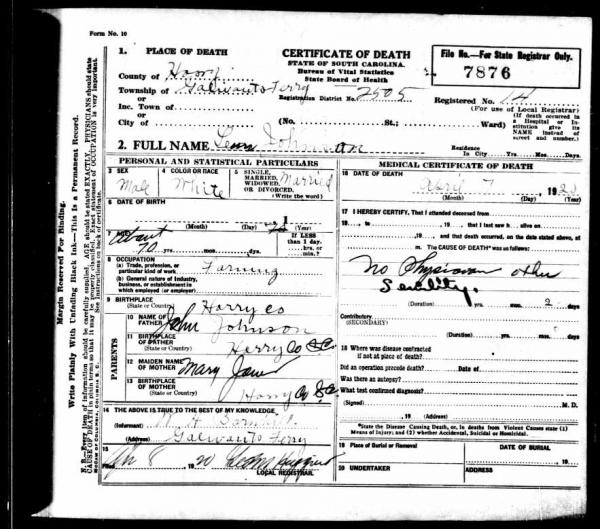 Form No. 10
1. PLACE OF DEATH
County of Horry
Township of Galivants Ferry
or
Inc. Town of
or
City of
CERTIFICATE OF DEATH
STATE OF SOUTH CAROLINA.
Bureau of Vital Statistics
State Board of Health
Registration District No. 2505
(No. St.; Ward)
File No.—For State Registrar Only.
7876
Registered No. 14
(For use of Local Registrar)
(If death occurred in a Hospital or Institution give its NAME instead of street and number.)
2. FULL NAME
Residence
In City Yrs. Mos. Days.
PERSONAL AND STATISTICAL PARTICULARS
3 SEX
Male
4 COLOR OR RACE
White
5 SINGLE, MARRIED, WIDOWED, OR DIVORCED. (Write the word)
Married
6 DATE OF BIRTH
(Month) (Day) (Year)
7 AGE
About
70 yrs. mos. days.
If LESS than 1 day. hrs. or min.?
8 OCCUPATION
(a) Trade, profession, or particular kind of work
Farming
(b) General nature of Industry, business, or establishment in which employed (or employer)
9 BIRTHPLACE
(State or Country)
Horry Co
PARENTS
10 NAME OF FATHER
John Johnson
11 BIRTHPLACE OF FATHER
(State or Country)
Horry Co S.C.
12 MAIDEN NAME OF MOTHER
Mary Jane
13 BIRTHPLACE OF MOTHER
(State or Country)
Horry Co S.C.
14 THE ABOVE IS TRUE TO THE BEST OF MY KNOWLEDGE
(Informant)
(Address) Galivants Ferry
15
Filed 8 1920
LOCAL REGISTRAR.
MEDICAL CERTIFICATE OF DEATH
16 DATE OF DEATH
April 7, 1920
(Month) (Day) (Year)
17 I HEREBY CERTIFY, That I attended deceased from
, 19 , to , 19 , that I last saw h alive on
, 19 , and that death occurred, on the date stated above, at
m. The CAUSE OF DEATH* was as follows:
No Physician other
Senility.
(Duration) yrs. mos. 2 days
Contributory
(SECONDARY)
(Duration) yrs. mos. days
18 Where was disease contracted
if not at place of death?
Did an operation precede death? Date of
Was there an autopsy?
What test confirmed diagnosis?
(Signed) M. D.
, 19 (Address)
*State the Disease Causing Death, or, in deaths from Violent Causes state (1) Means of Injury; and (2) whether Accidental, Suicidal or Homicidal.
19 Place of Burial or Removal
DATE OF BURIAL
19
20 UNDERTAKER
ADDRESS
Margin Reserved For Binding.
Write Plainly With Unfading Black Ink—This is a Permanent Record.
N. B.—Every item of information should be carefully supplied. AGE should be stated EXACTLY. PHYSICIANS should state CAUSE OF DEATH in plain terms so that it may be properly classified. Exact statement of OCCUPATION is very important. See instructions on back of certificate.